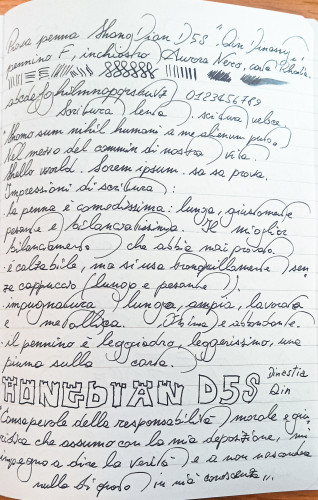 Prova penna Shang Dian D5S "Qin Dinasty"
pennino F, inchiostro Aurora Nero, carta Rhodia.
abcdefghilmnopqrstuvz 0123456789
Scrittura lenta. scrittura veloce
Homo sum nihil humani a me alienum puto.
Nel mezzo del cammin di nostra vita.
Hello world. Lorem ipsum. sa sa prova.
Impressioni di scrittura:
la penna è comodissima: lunga, giustamente
pesante e bilanciatissima. Il miglior
bilanciamento che abbia mai provato.
è calzabile, ma si usa tranquillamente sen
za cappuccio (lungo e pesante).
impugnatura lunga, ampia, lavorata
e metallica. Ottima e abbondante.
il pennino è leggiadro, leggerissimo, una
piuma sulla carta.
HONGDIAN D5S Dinestia
Qin
"Consapevole della responsabilità morale e giu
ridica che assumo con la mia deposizione, mi
impegno a dire la verità e a non nascondere
nulla di quanto in mia conoscenza"...